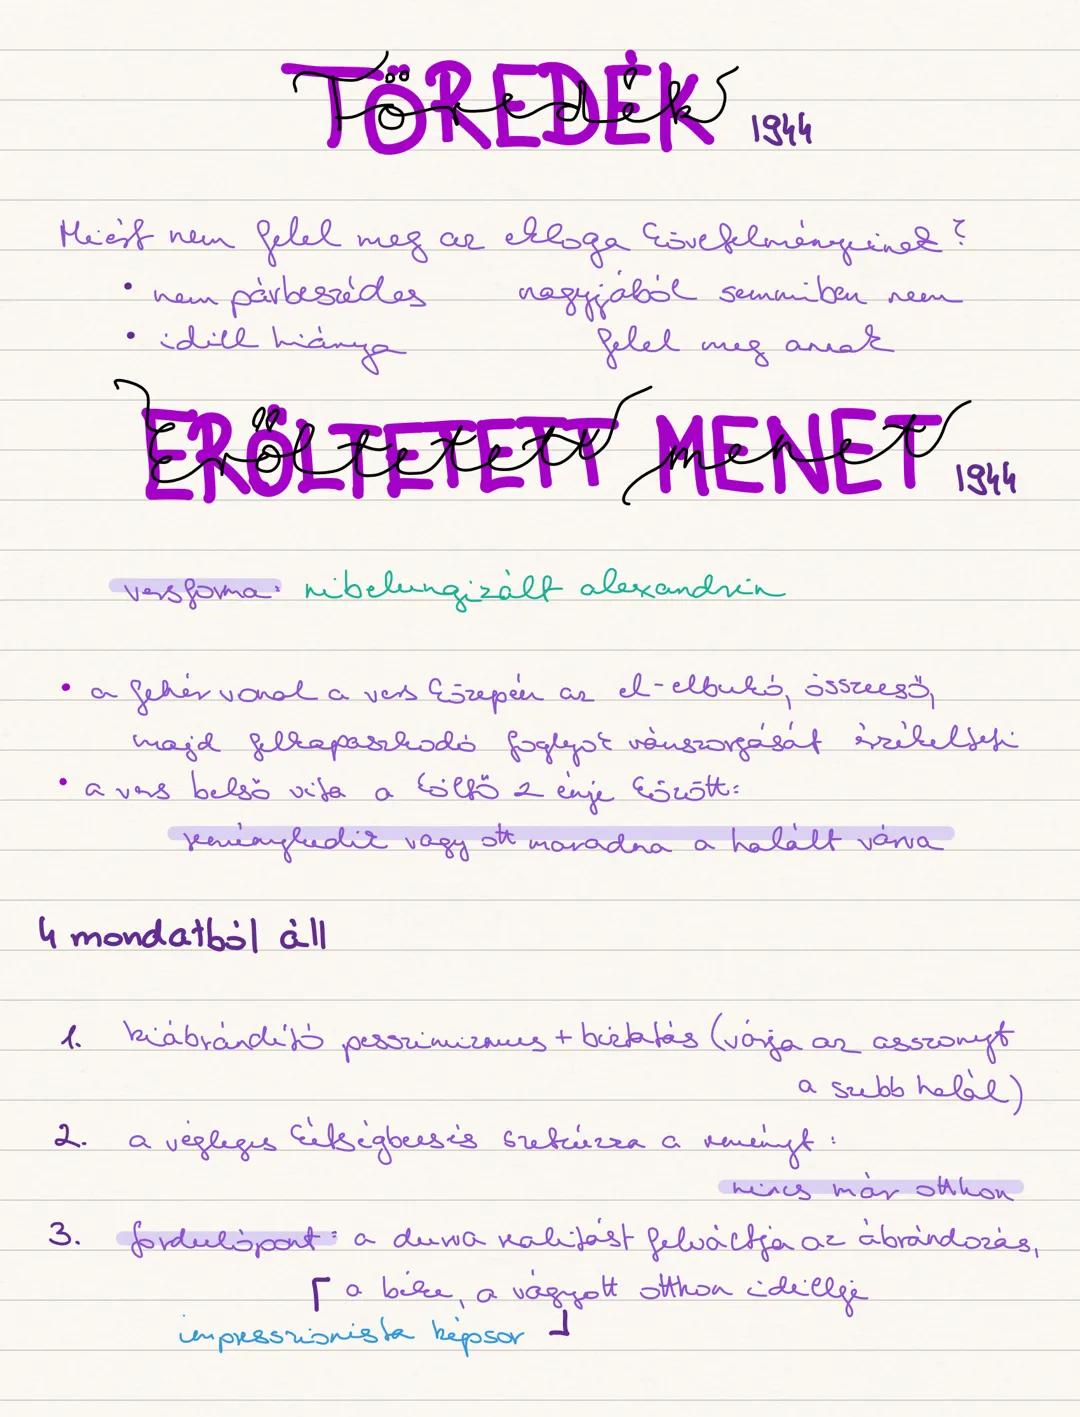 TÖREDÉK 1944
Miért nem felel meg az ekloga követelményeinek?
• nem párbeszédes nagyjából semmiben nem
• idill hiánya felel meg annak
ERŐLTETETT MENET 1944
versforma: nibelungizált alexandrin
• a fehér vonal a vers közepén az el-elbukó, összeeső,
majd felkapaszkodó foglyok vánszorgását érzékelteti
• a vers belső vita a költő 2 énje között:
reménykedik vagy ott maradna a halált várva
4 mondatból áll
1. kiábrándító pesszimizmus + biztatás (várja az asszonyt
a szebb halál)
2. a végleges kétségbeesés szétzúzza a reményt:
nincs már otthon
3. fordulópont: a durva realitást felváltja az ábrándozás,
┌ a béke, a vágyott otthon idillje
impresszionista képsor ┘